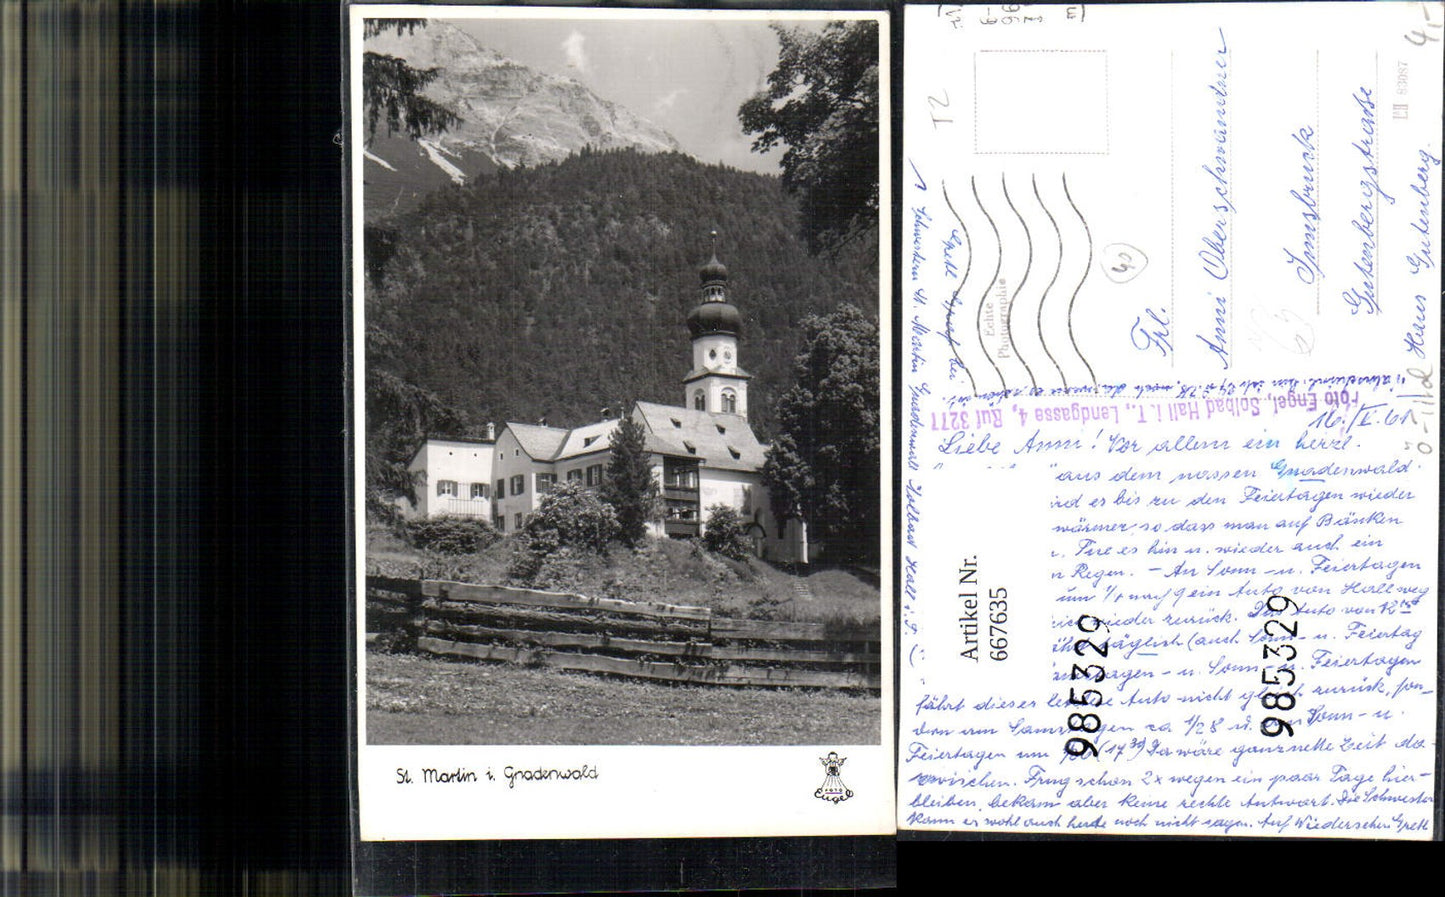 St. Martin i. Gnadenwald
FOTO
Engel
T2
4,-
83087
Echte
Photographie
40
Frl.
Anni Oberschwandtner
Innsbruck
Gutenbergstraße
Haus Gutenberg.
Foto Engel, Solbad Hall i. T., Lendgasse 4, Ruf 3277
Schwestern St. Martin Gnadenwald Solbad Hall i. T.
16./V. 61
Liebe Anni! Vor allem ein herzl.
aus dem nassen Gnadenwald.
es bis zu den Feiertagen wieder
wärmer, so dass man auf Bänken
es hin u. wieder auch ein
Regen. – An Sonn- u. Feiertagen
um 1/4 nach 9 ein Auto von Hall weg
wieder zurück. Das Auto von
täglich (auch Sonn- u. Feiertag
u. Sonn- u. Feiertagen
fährt dieser letzte Auto nicht gleich zurück, son-
dern um Samstagen ca 1/2 8 u. Sonn- u.
Feiertagen um Da wäre ganz nette Zeit da-
zwischen. Frug schon 2x wegen ein paar Tage hier-
bleiben, bekam aber keine rechte Antwort. Die Schwester
kann es wohl auch heute noch nicht sagen. Auf Wiedersehen Gretl
Artikel Nr.
667635
985329
985329